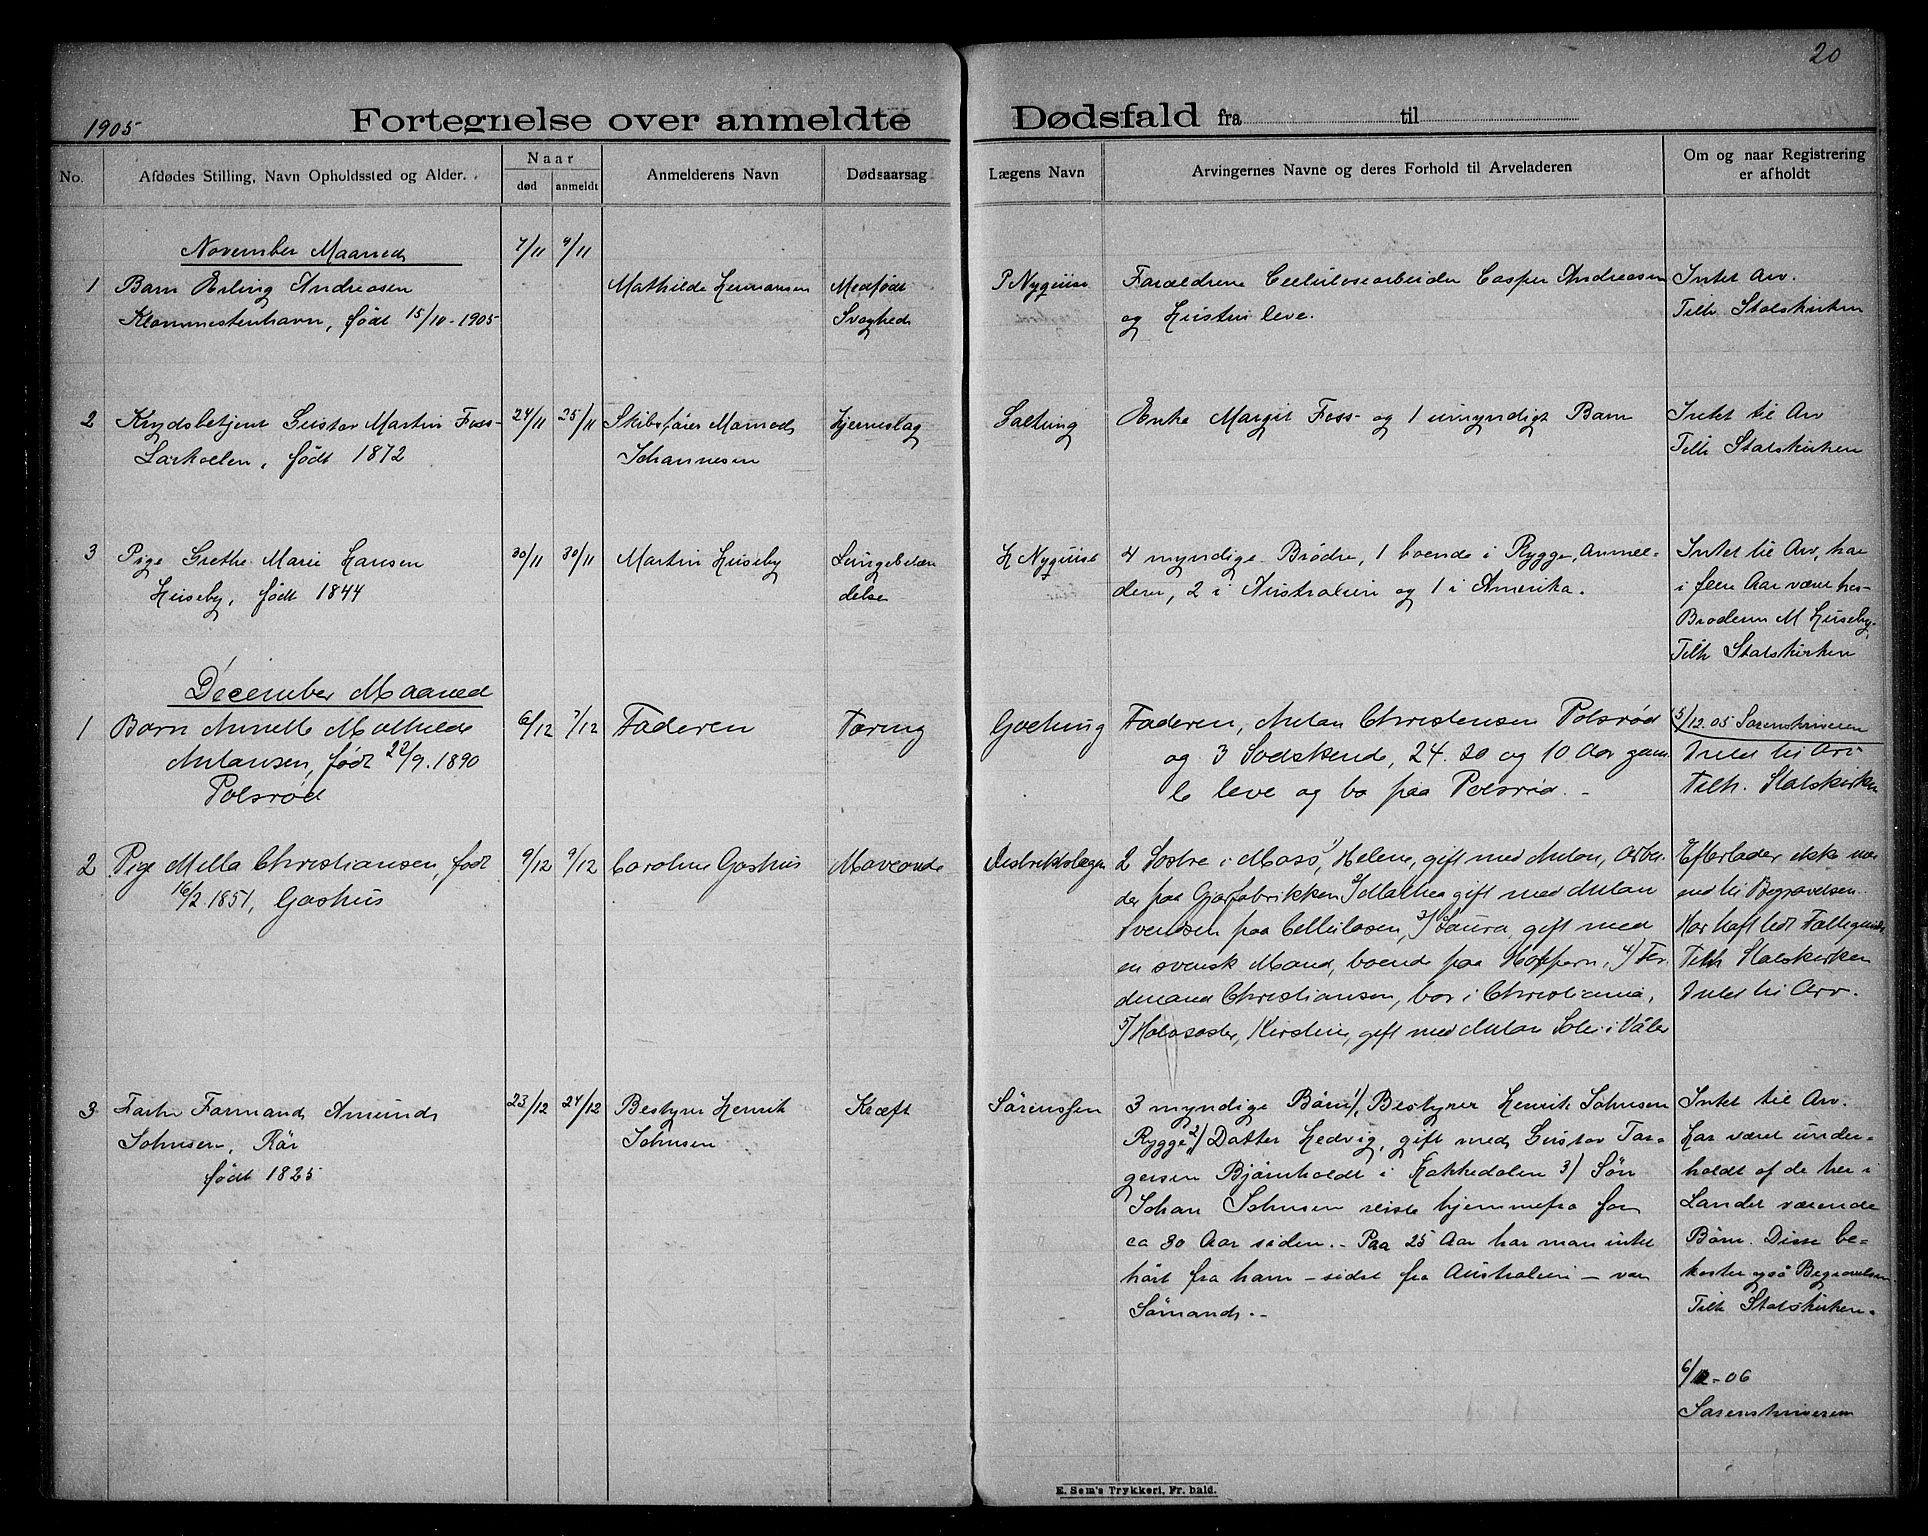 20
1905
Fortegnelse over anmeldte Dødsfald fra til
No.
Afdødes Stilling, Navn Opholdssted og Alder.
Naar
død
anmeldt
Anmelderens Navn
Dødsaarsag
Lægens Navn
Arvingernes Navne og deres Forhold til Arveladeren
Om og naar Registrering
er afholdt
November Maaned
7/11 9/11
1
Barn Erling Andreasen
Klommestenhavn, født 15/10-1905
Mathilde Hermansen
Medfødt
Svaghed
P Nyquist
Foreldrene Cellulosearbeider Casper Andreasen
og Hustru leve.
Intet Arv.
Tilh Statskirken
2
Krydsbetjent Gustav Martin Foss
Larkollen, født 1872
24/11 25/11
Skibsfører
Johannesen
Hjerneslag
Saltung
Enke Margit Foss og 1 umyndigt Barn
Intet til Arv
Tilh Statskirken
3
Pige Grethe Marie Hansen
Huseby, født 1844
30/11 30/11
Martin Huseby
Lungebetæn
delse
H Nyquist
4 myndige Brødre, 1 boende i Rygge, Anmel-
deren, 2 i Australien og 1 i Amerika.
Intet til Arv, har
i flere Aar været hos
Broderen M Huseby.
Tilh Statskirken
December Maaned
1
Barn Annette Mathilde
Antonsen, født 22/9.1890
Polsrød
6/12 7/12
Faderen
Tæring
Faderen, Anton Christensen Polsrød
og 3 Sødskende, 24. 20 og 10 Aar gam
le leve og bo paa Polsrød. -
5/12.05 Sorenskriveren
Intet til Arv
Tilh. Statskirken
2
Pige Milla Christiansen, født
16/2 1851, Gashus
9/12 9/12
Caroline Gashus
Maveonde
Distriktslægen
2 Søstre i Moss 1/ Helene, gift med Anton, Arbei
der paa Gjærfabrikken 2/ Mathea gift med Anton
Svendsen paa Cellulosen, 3/ Laura, gift med
en svensk Mand, boende paa Hoppern, 4) Fer
dinand Christiansen, bor i Christiania,
5/ Halvsøster, Kirstine, gift med Anton Solli i Våler
Efterlader ikke mer
end til Begravelsen.
Har haft lidt Fattigund.
Tilh Statskirken
Intet til Arv.
3
Farhv Formand Amund
Johnsen, Rør
født 1825
23/12 24/12
Bestyrer Henrik
Johnsen
Kræft
Sørenssen
3 myndige Børn 1), Bestyrer Henrik Johnsen
Rygge 2) Datter Hedvig, gift med Gustav Tor-
gersen Bjørnholdt i Hakkedalen 3) Søn
Johan Johnsen reiste hjemmefra for
ca 30 Aar siden. - Paa 25 Aar har man intet
hørt fra ham - sidst fra Australien - var
Sømand. -
Intet til Arv.
Har været under-
holdt af de her i
Landet værende
Børn. Disse be-
koster også Begravelsen
Tilh Statskirken.
-06
Sorenskriveren
E. Sem's Trykkeri, Fr. hald.